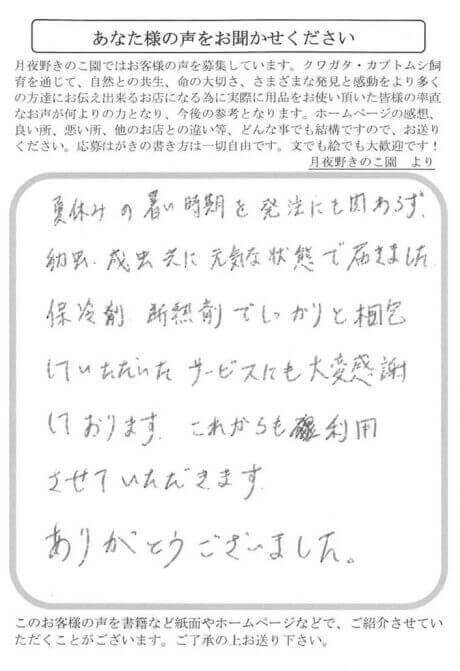 あなた様の声をお聞かせください
月夜野きのこ園ではお客様の声を募集しています。クワガタ・カブトムシ飼
育を通じて、自然との共生、命の大切さ、さまざまな発見と感動をより多く
の方達にお伝え出来るお店になる為に実際に用品をお使い頂いた皆様の率直
なお声が何よりの力となり、今後の参考となります。ホームページの感想、
良い所、悪い所、他のお店との違い等、どんな事でも結構ですので、お送り
ください。応募はがきの書き方は一切自由です。文でも絵でも大歓迎です！
月夜野きのこ園　より
夏休みの暑い時期を発注にも関わらず、
幼虫、成虫共に元気な状態で届きました
保冷剤、断熱剤でしっかりと梱包
していただいたサービスにも大変感謝
しております。これからも利用
させていただきます。
ありがとうございました。
このお客様の声を書籍など紙面やホームページなどで、ご紹介させてい
ただくことがございます。ご了承の上お送り下さい。